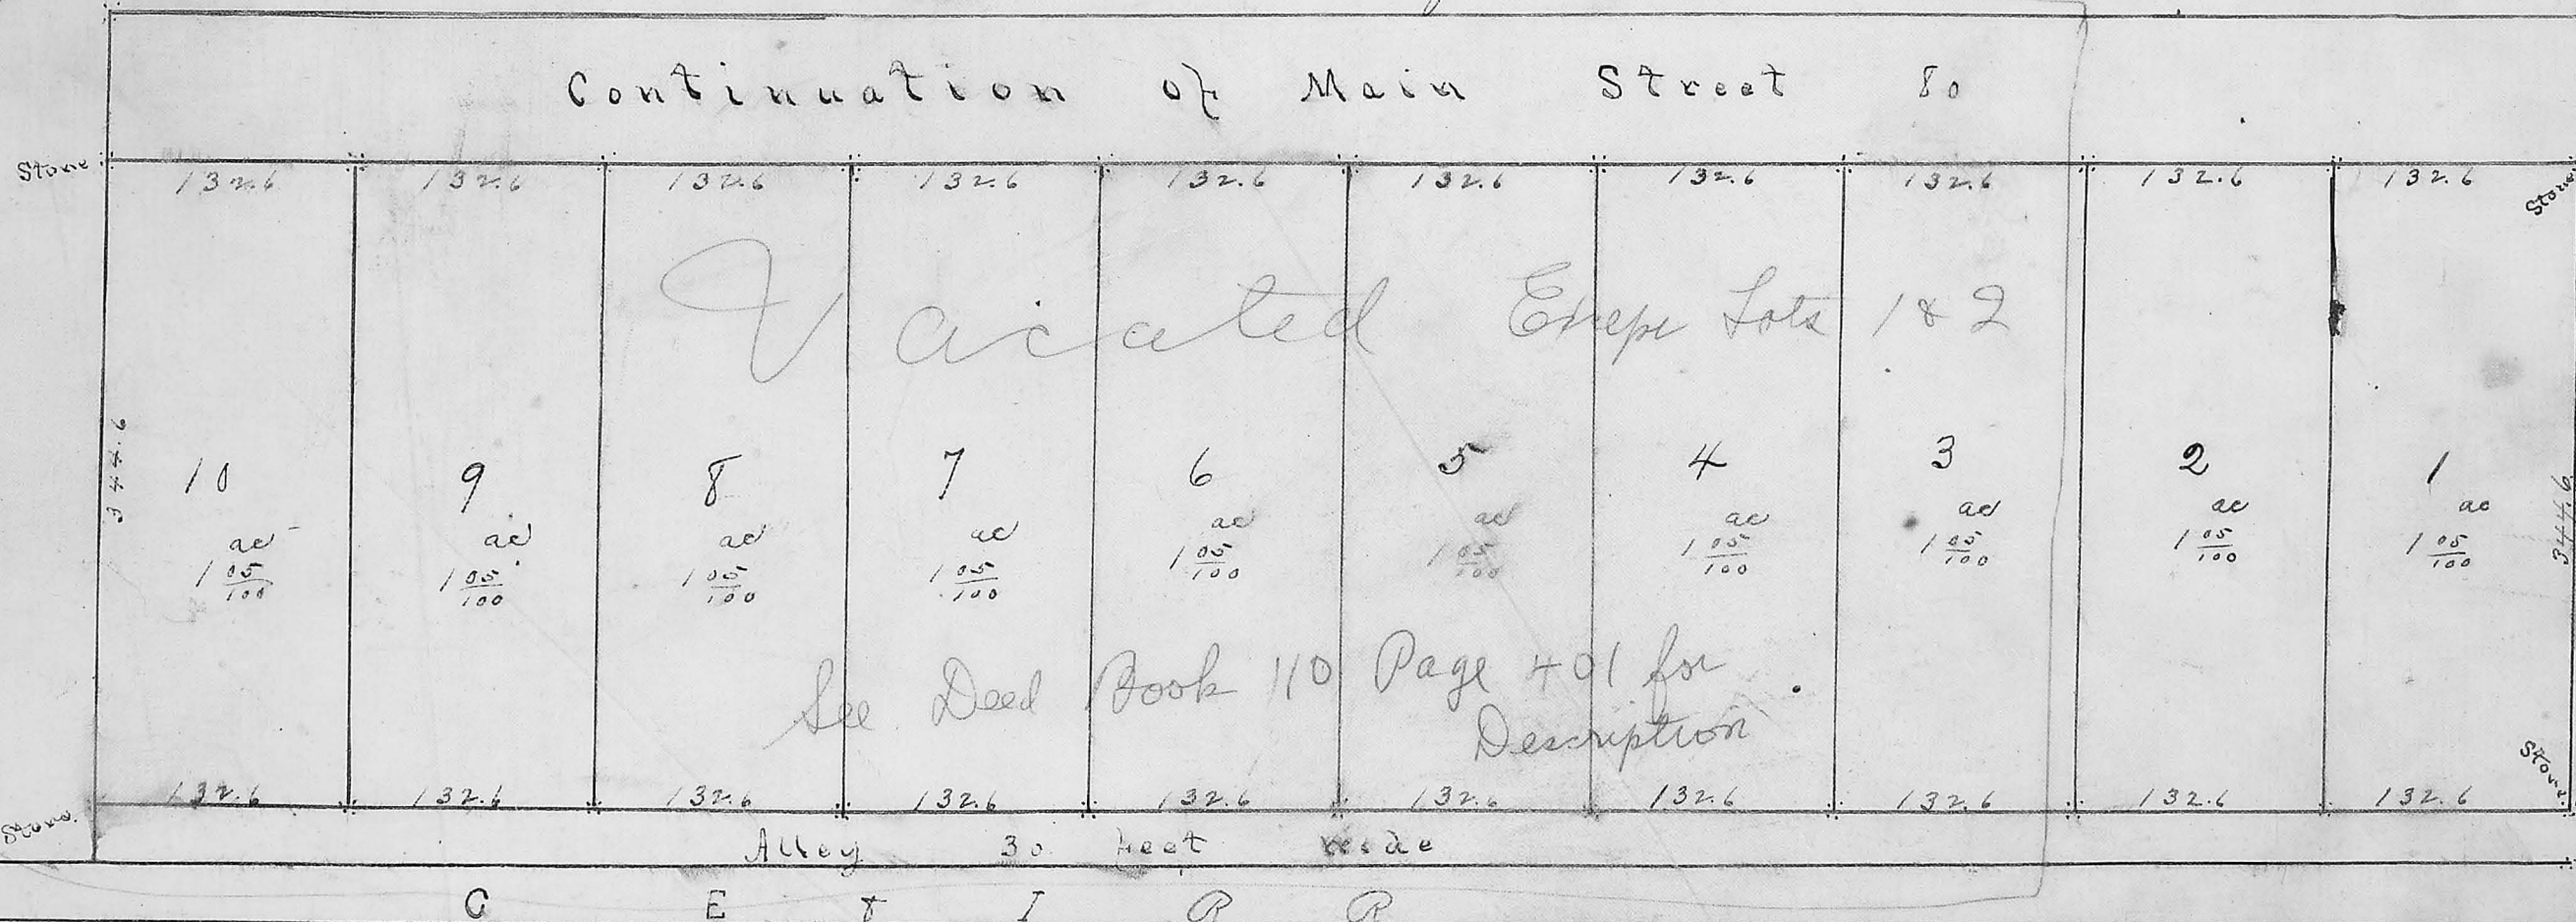 Continuation of Main Street 80
Stone 132.6 132.6 132.6 132.6 132.6 132.6 132.6 132.6 132.6 132.6 Stone
Vacated Lots 1 & 2
344.6 10 9 8 7 6 5 4 3 2 1 344.6
ac ac ac ac ac ac ac ac ac ac
1 05/100 1 05/100 1 05/100 1 05/100 1 05/100 1 05/100 1 05/100 1 05/100 1 05/100 1 05/100
See Deed Book 110 Page 401 for
Description
Stone 132.6 132.6 132.6 132.6 132.6 132.6 132.6 132.6 132.6 132.6 Stone
Alley 30 feet wide
C E & I R R